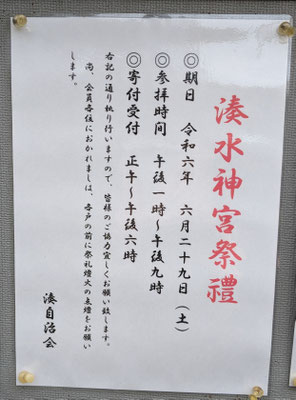 湊水神宮祭禮
◎期日　令和六年　六月二十九日（土）
◎参拝時間　午後一時〜午後九時
◎寄付受付　正午〜午後六時
右記の通り執り行いますので、皆様のご協力宜しくお願い致します。
尚、会員各位におかれましは、各戸の前に祭礼燈火の点燈をお願い
します。
湊自治会